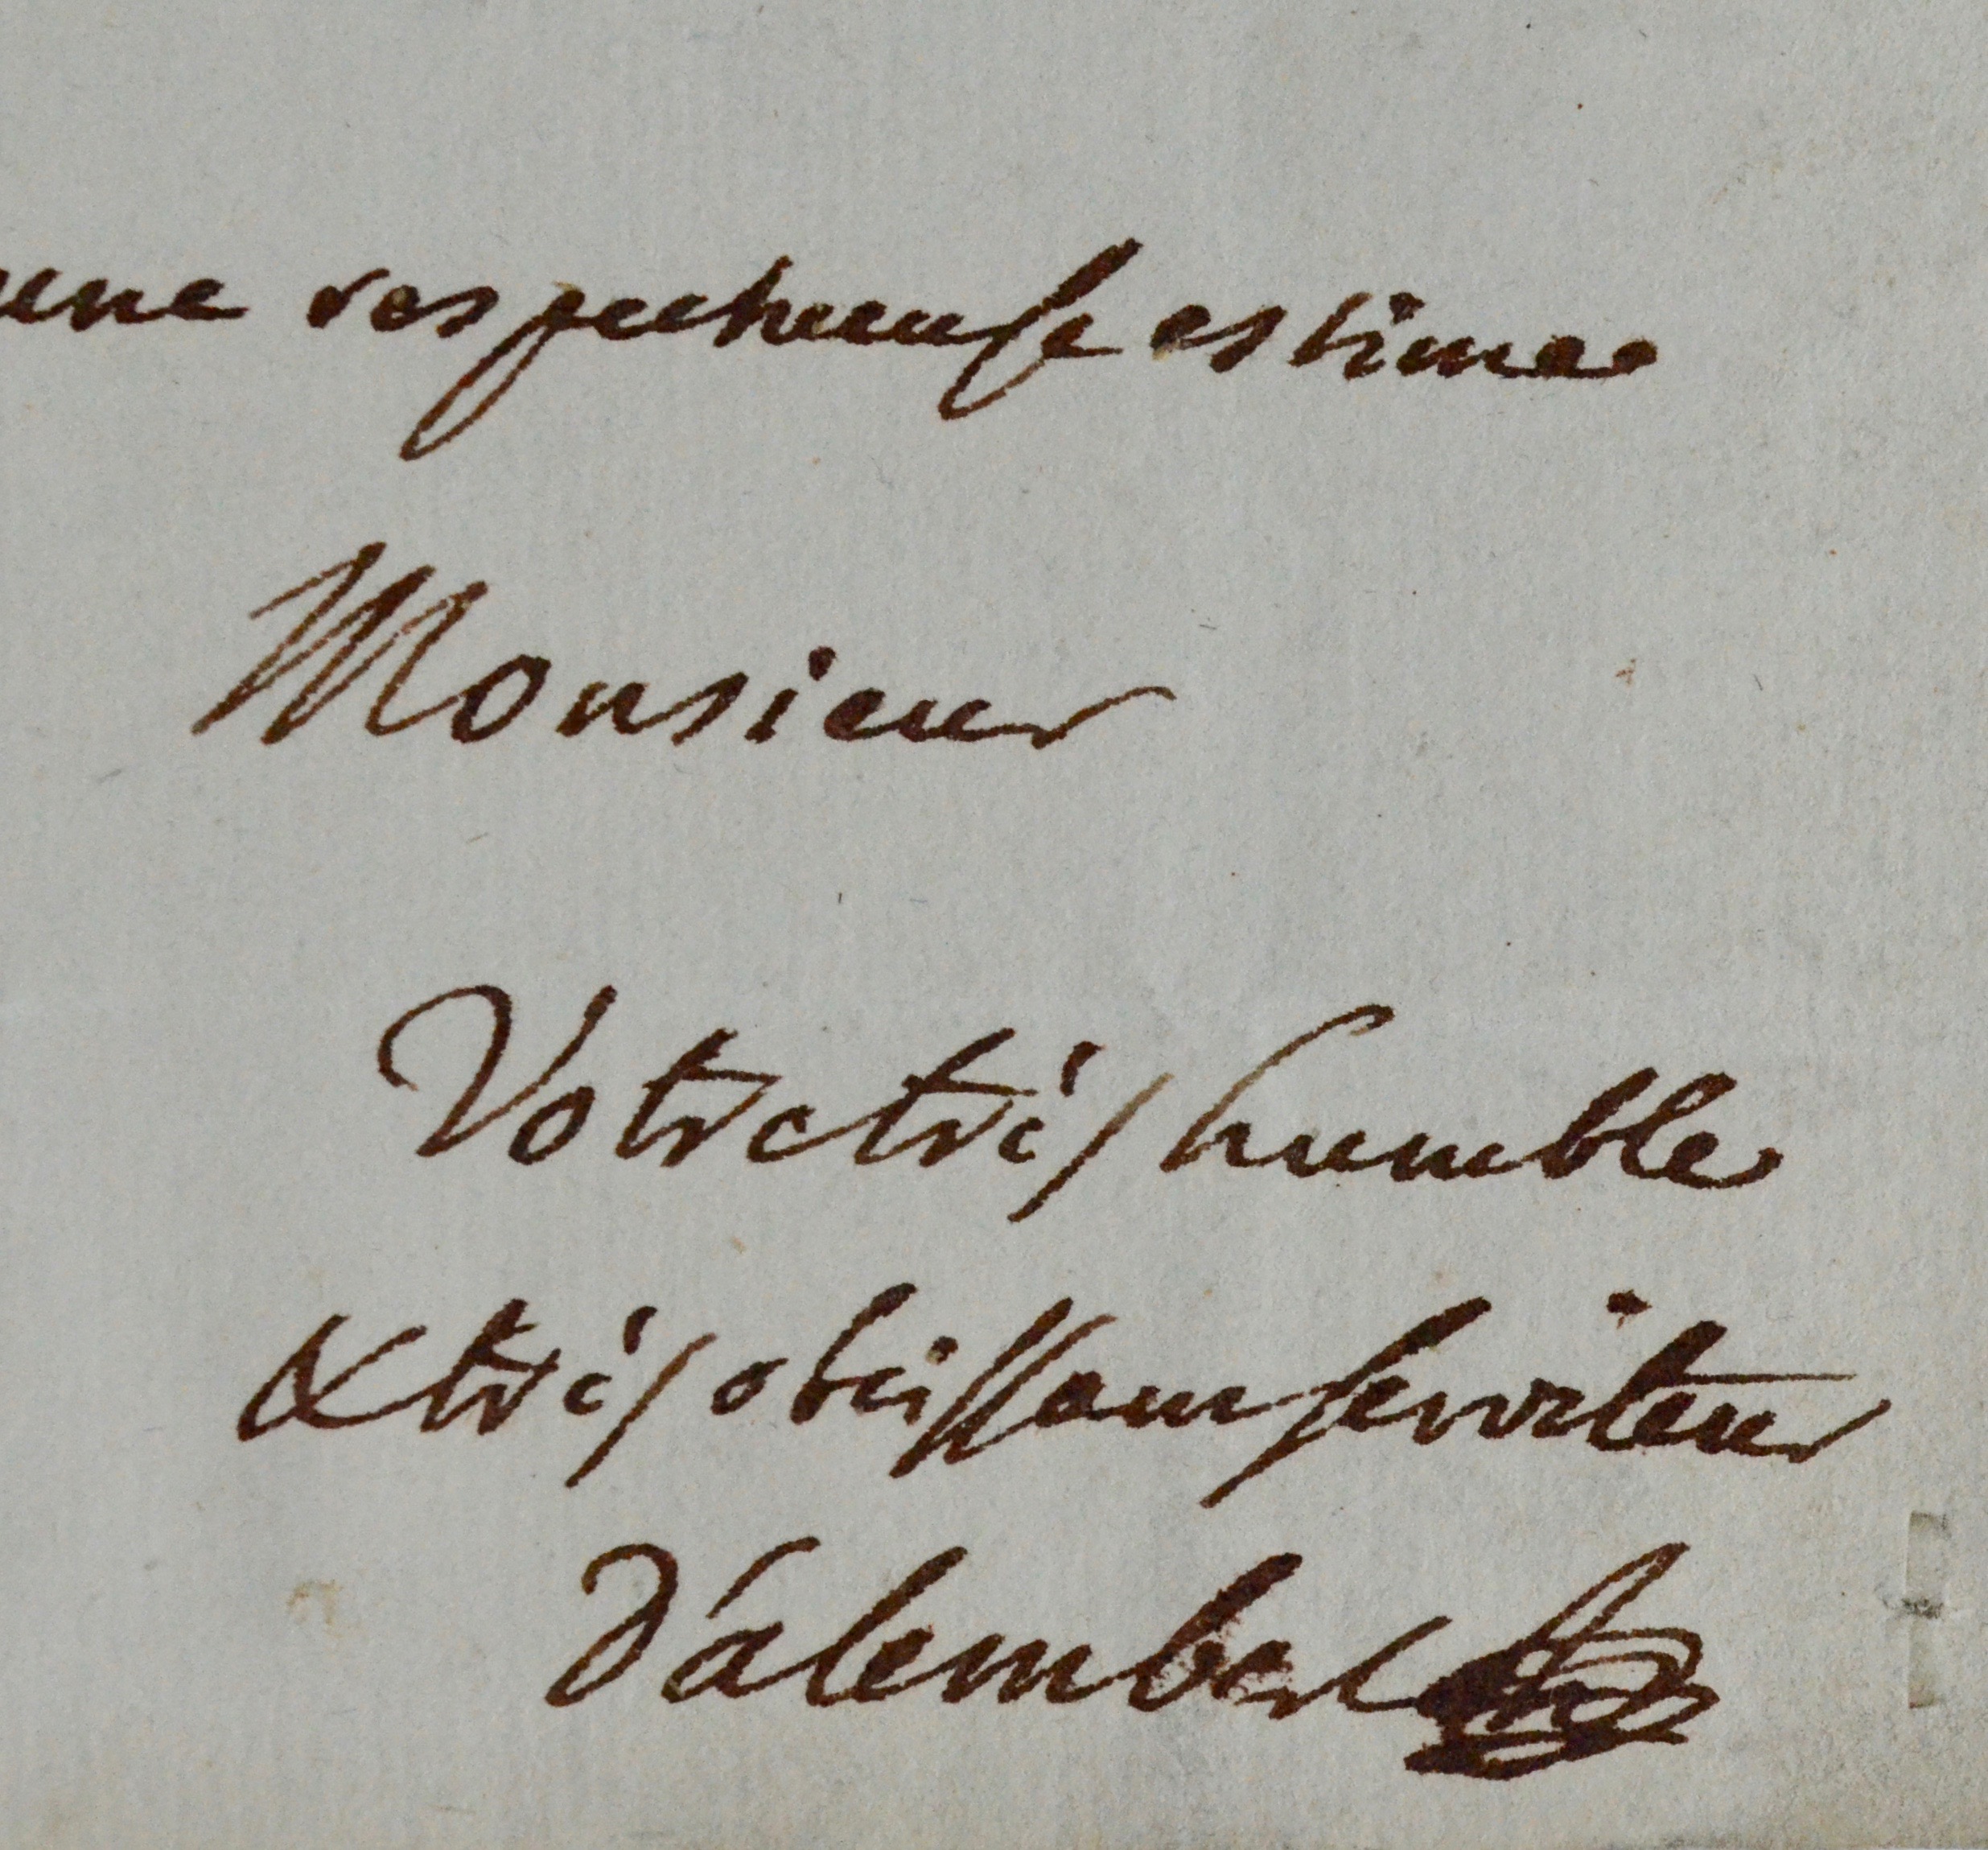 une respectueuse estime
Monsieur
Votre très humble
& très obeissant serviteur
D'alembert